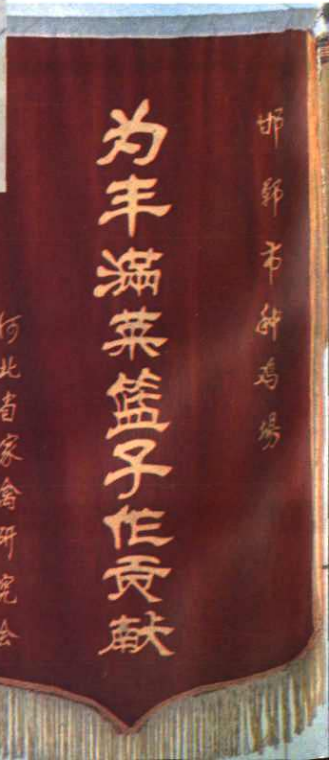 邯郸市种鸡场
为丰满菜篮子作贡献
河北省家禽研究会